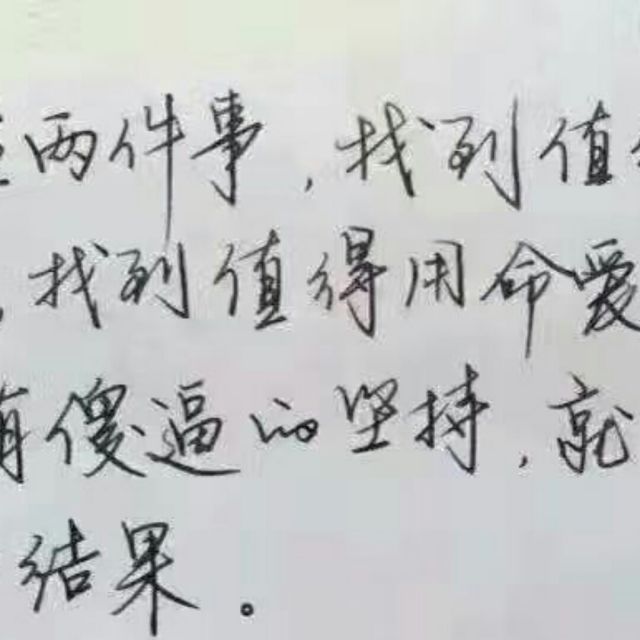 两件事,找到值
找到值得用命爱
有傻逼的坚持,就
结果。